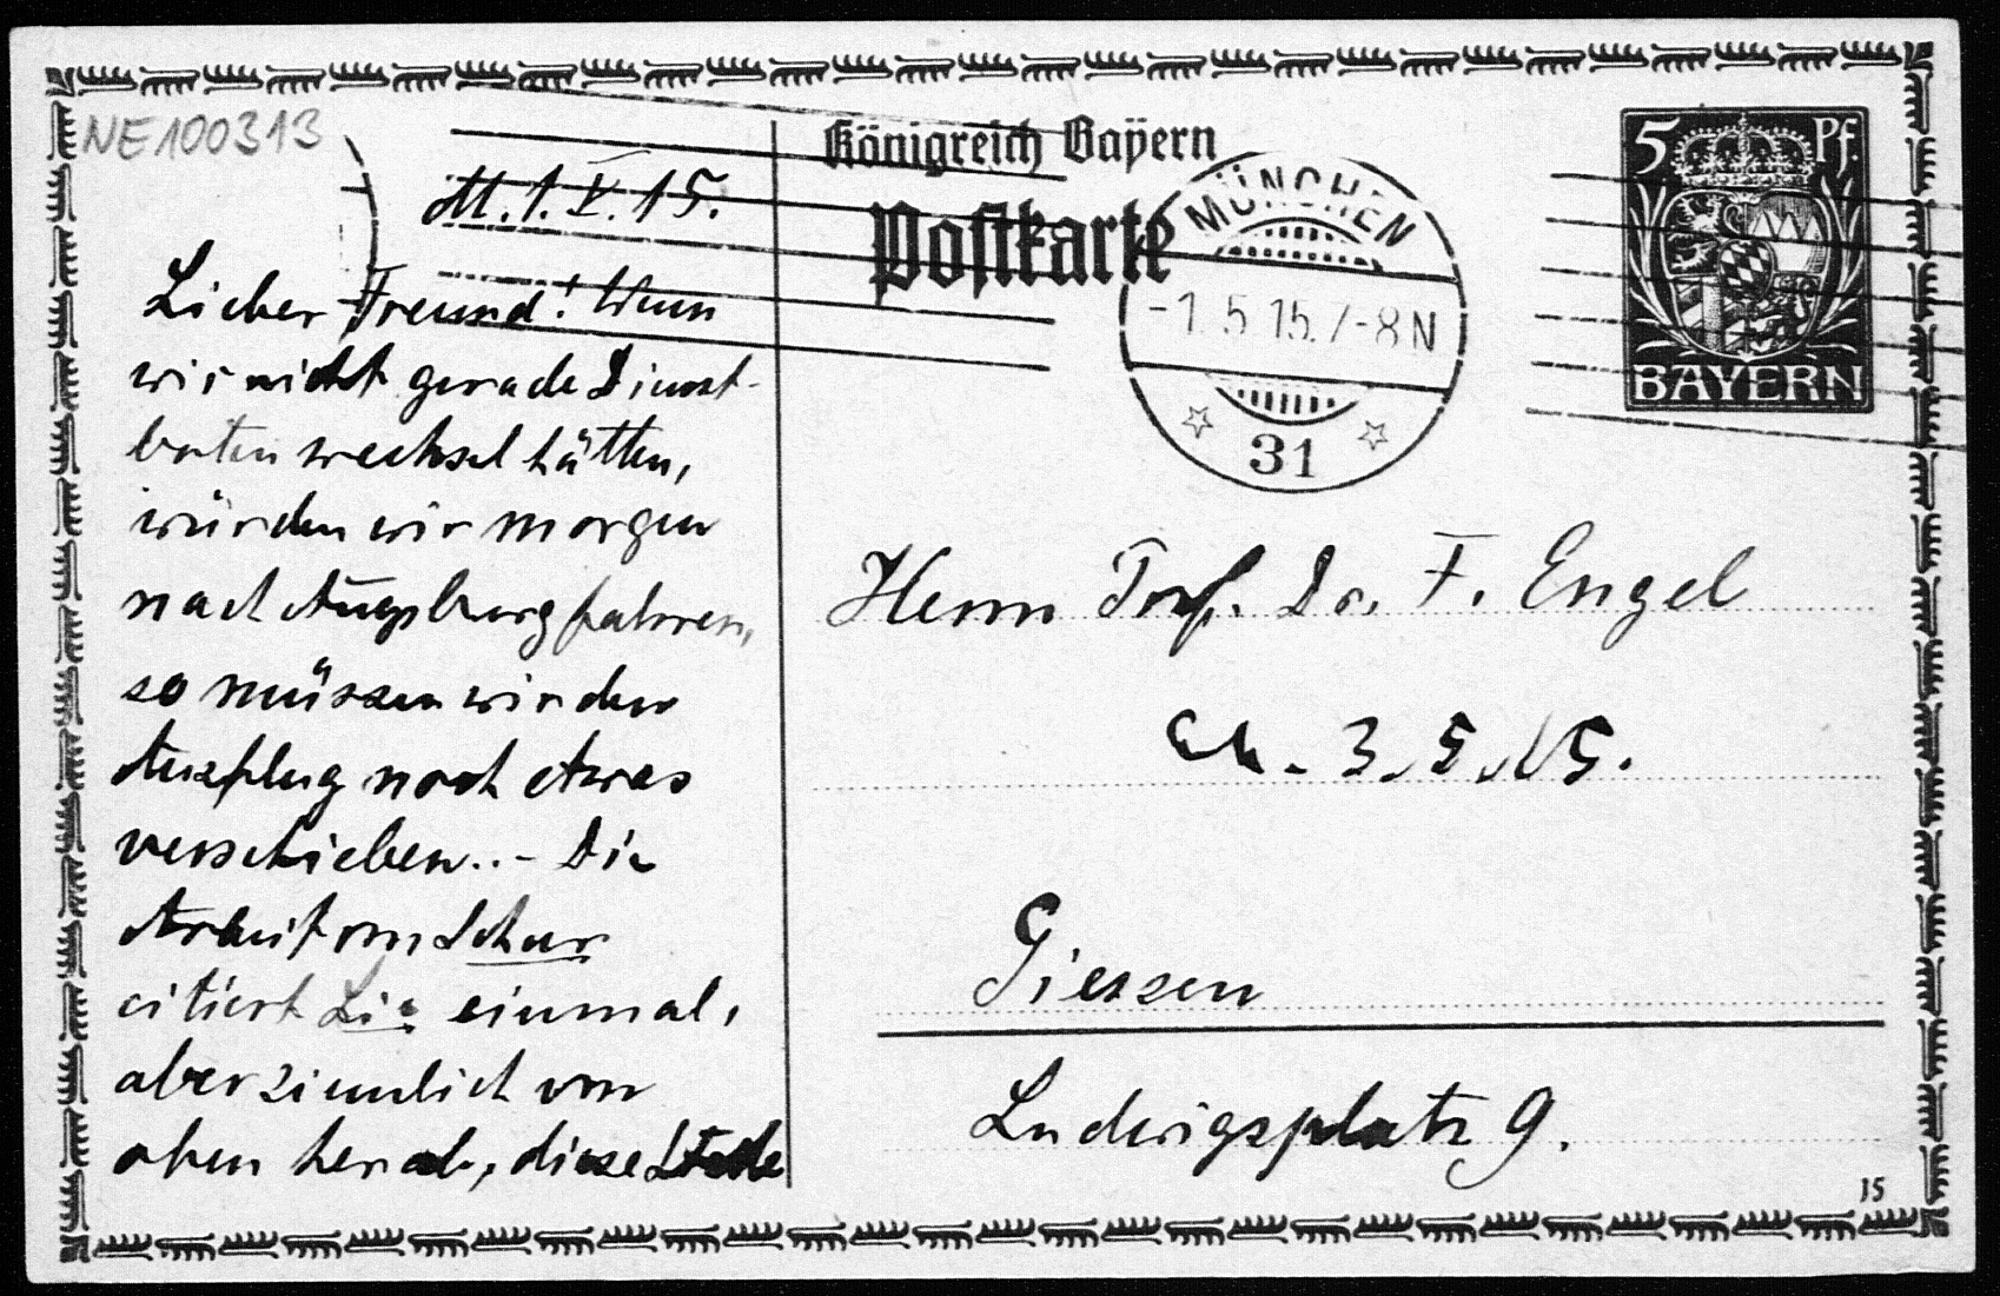 NE100313
M. 1. V. 15.
Lieber Freund! Wenn
wir nicht gerade Dienst-
boten wechsel hätten,
würden wir morgen
nach Augsburg fahren,
so müssen wir den
Ausflug noch etwas
verschieben.. - Die
Arbeit von Schur
citiert Sie einmal,
aber ziemlich von
oben herab, diese Stelle
Königreich Bayern
Postkarte
MÜNCHEN
-1. 5 15. 7-8 N
31
5 Pf.
BAYERN
Herrn Prof. Dr. F. Engel
3.5.15.
Giessen
Ludwigsplatz 9.
15